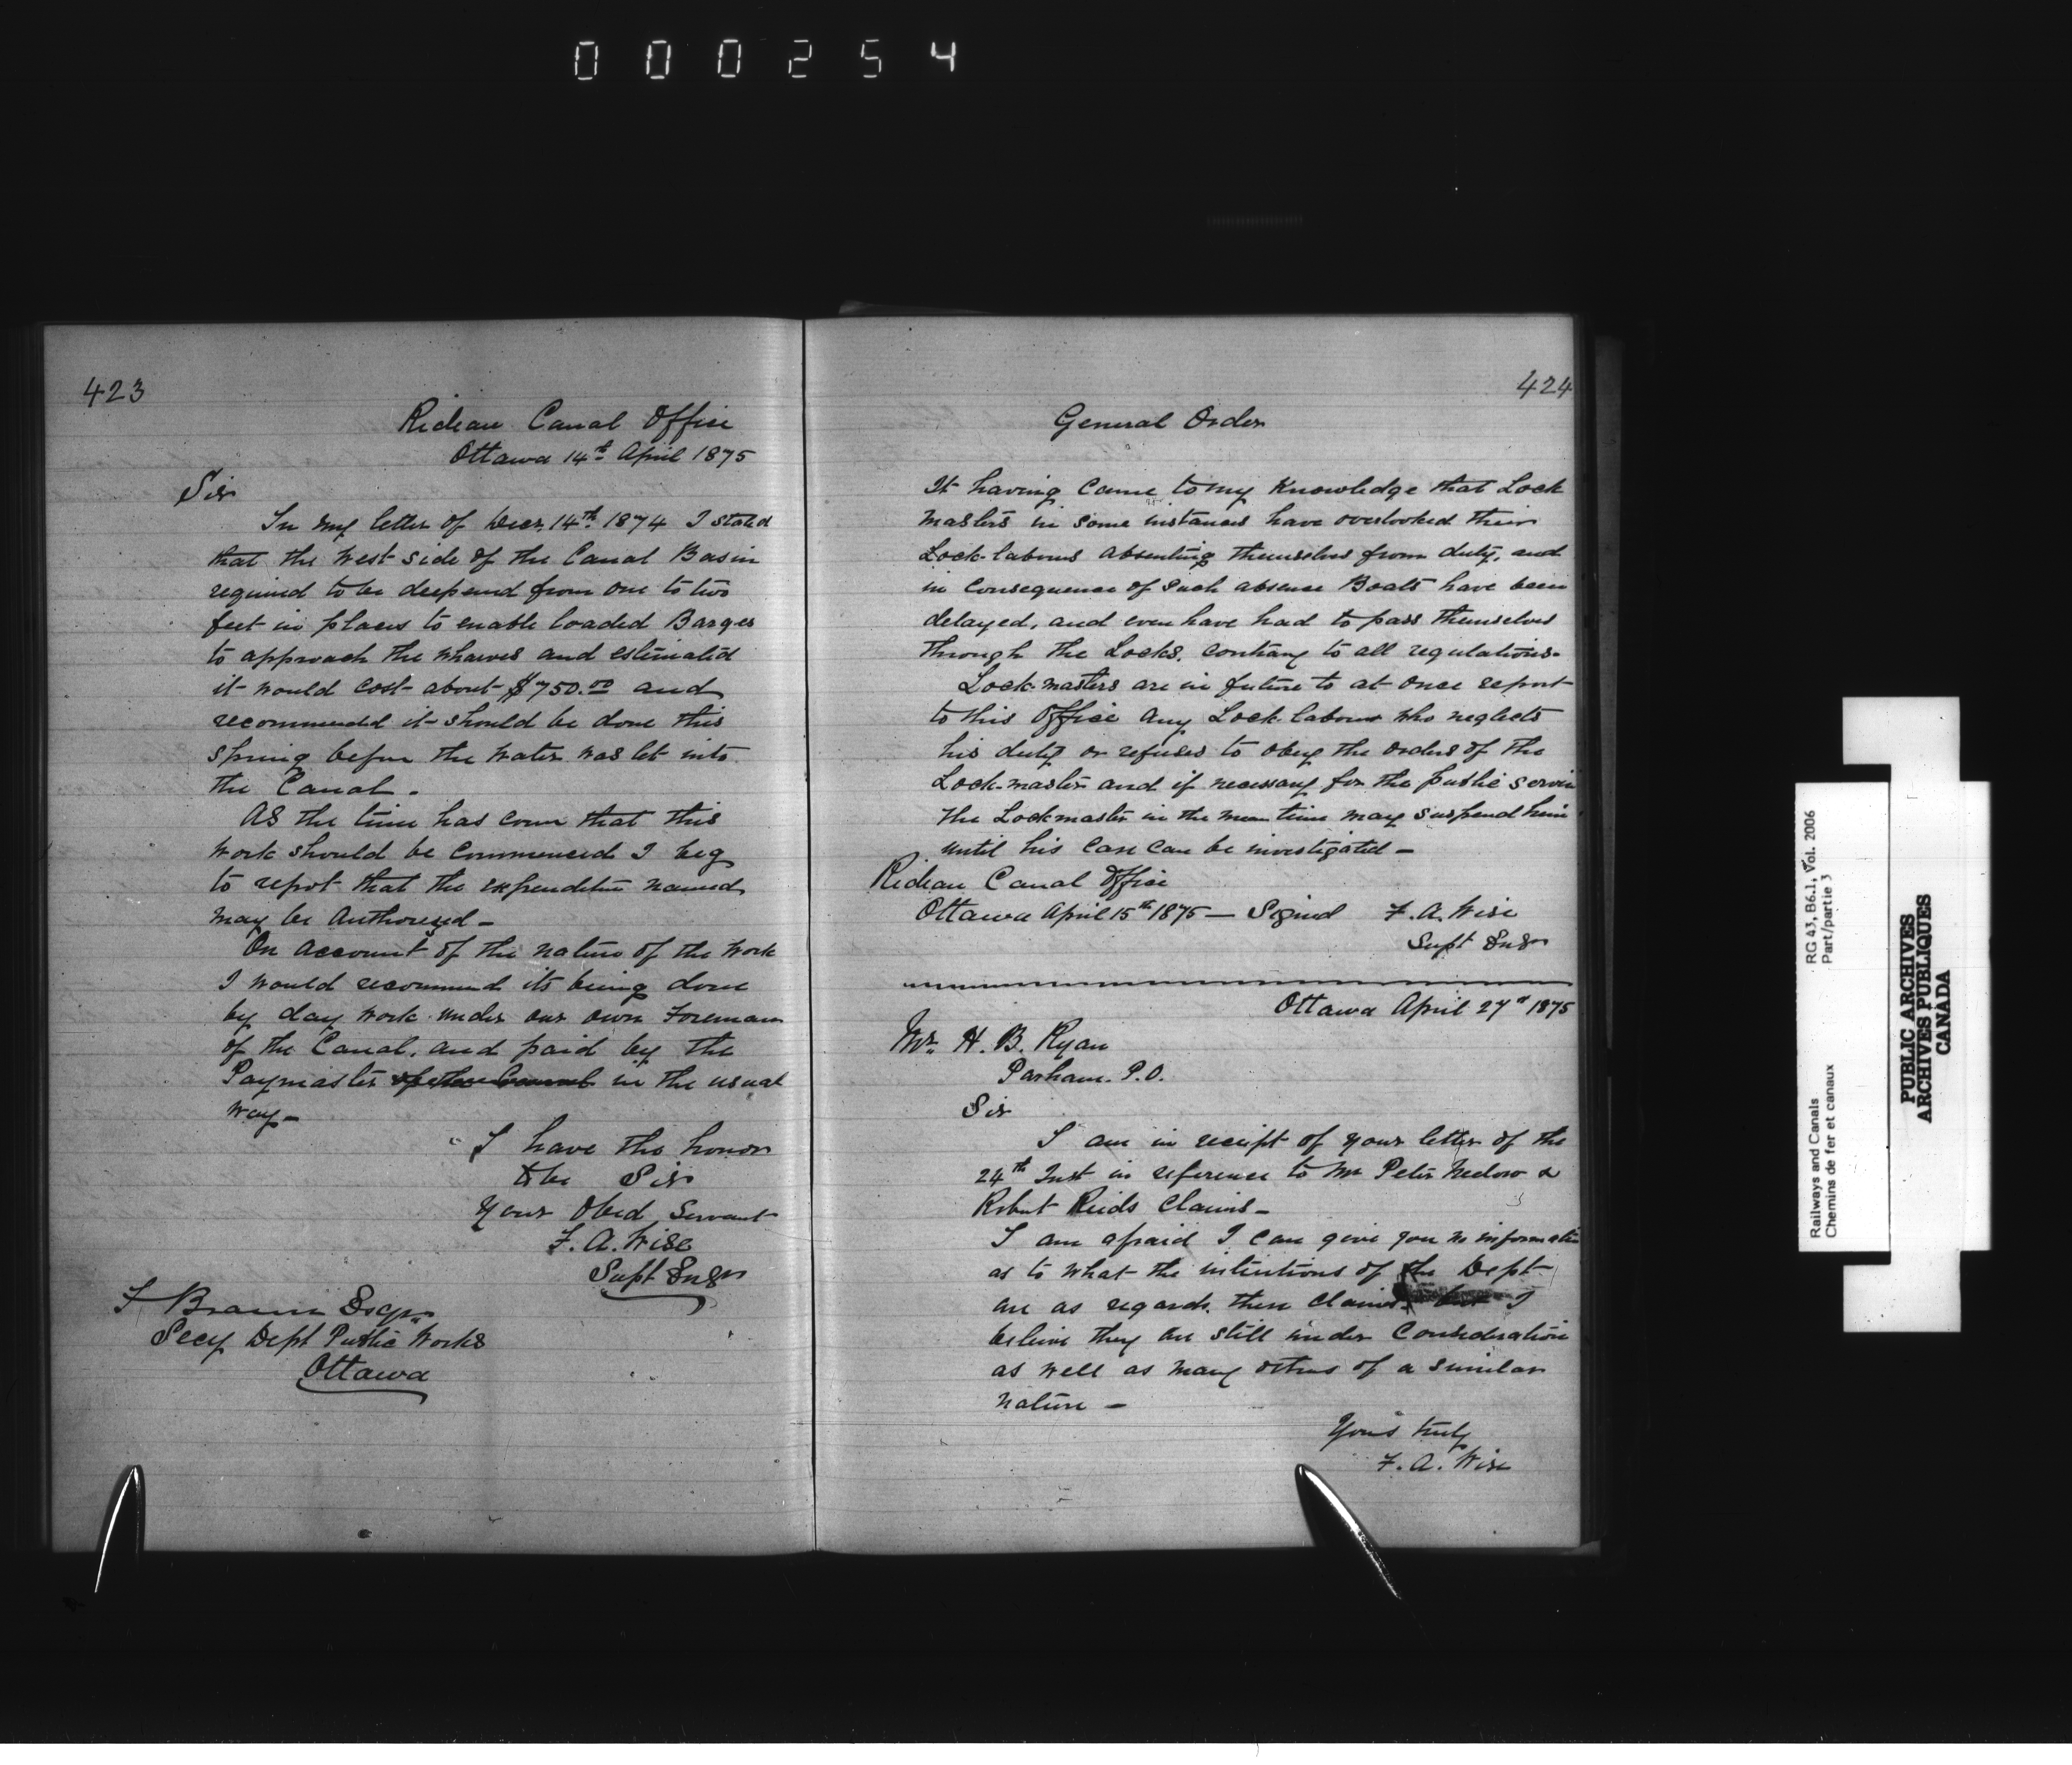 000254
423
Rideau Canal Office
Ottawa 14th April 1875
Sir
In my letter of Decr 14th 1874 I stated
that the West side of the Canal Basin
required to be deepened from one to two
feet in places to enable loaded Barges
to approach the wharves and estimated
it would cost about $750.00 and
recommended it should be done this
spring before the water was let into
the Canal.
As the time has come that this
work should be commenced I beg
to report that the expenditure named
may be Authorized —
On account of the nature of the work
I would recommend its being done
by day work under our own Foreman
of the Canal, and paid by the
Paymaster of the Canal in the usual
way —
I have the honor
to be Sir
Your Obed Servant
F. A. Wise
Supt Engr
F Braun Esqr
Secy Dept Public Works
Ottawa
424
General Order
It having came to my Knowledge that Lock
masters in some instances have overlooked their
Lock-labourers absenting themselves from duty, and
in consequence of such absence Boats have been
delayed, and even have had to pass themselves
through the Locks, contrary to all regulations.
Lock-masters are in future to at once report
to this Office any Lock labourer who neglects
his duty or refuses to obey the orders of the
Lock-master and if necessary for the public service
the Lockmaster in the mean time may suspend him
until his case can be investigated —
Rideau Canal Office
Ottawa April 15th 1875 — Signed F. A. Wise
Supt Engr
Ottawa April 27th 1875
Mr. H. B. Ryan
Parham. P.O.
Sir
I am in receipt of your letter of the
24th Inst in reference to Mr Peter &
Robert Reids Claims —
I am afraid I can give you no information
as to what the intentions of the Dept
are as regards these claims but I
believe they are still under Consideration
as well as many others of a similar
nature —
Yours truly
F. A. Wise
Railways and Canals
Chemins de fer et canaux
RG 43, B6.1, Vol. 2006
Part/partie 3
PUBLIC ARCHIVES
ARCHIVES PUBLIQUES
CANADA